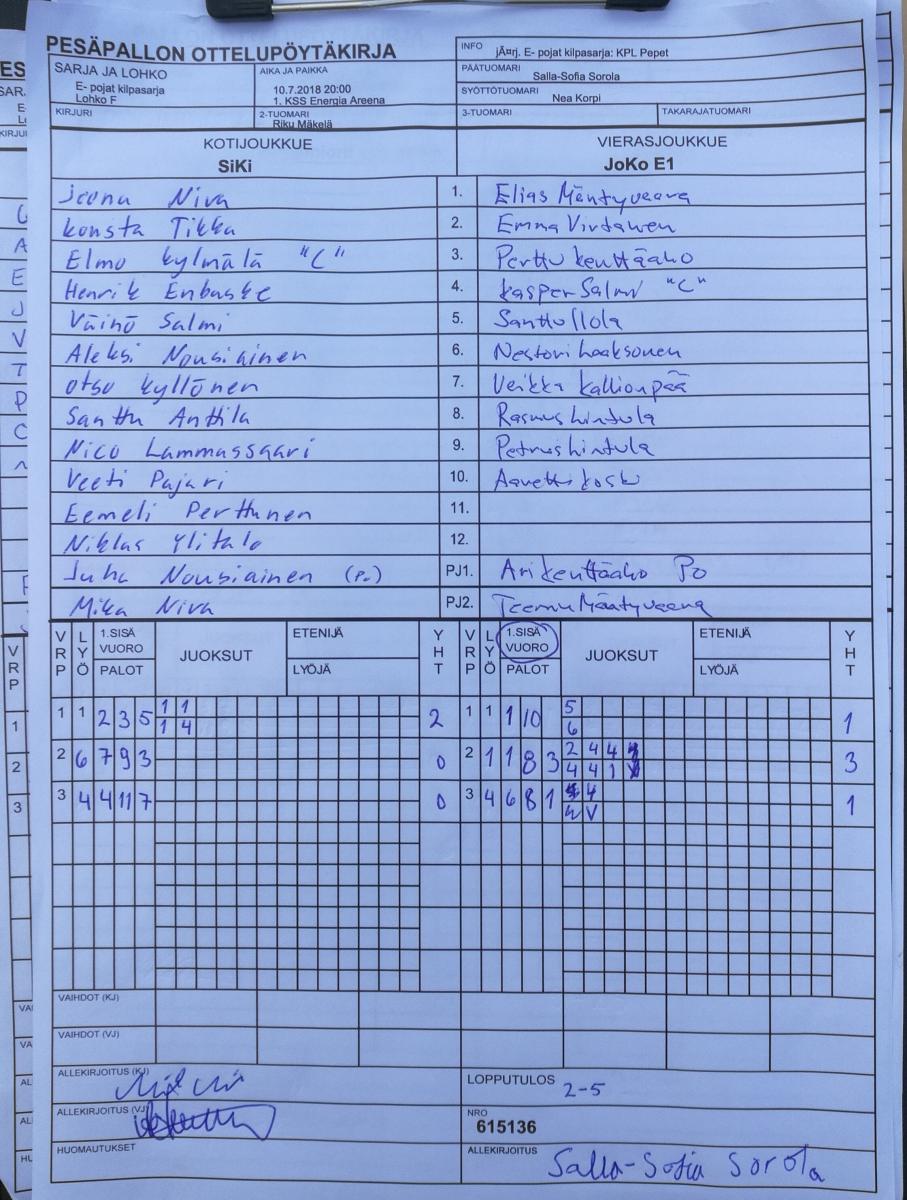 PESÄPALLON OTTELUPÖYTÄKIRJA
INFO jÃ¤rj. E- pojat kilpasarja: KPL Pepet
SARJA JA LOHKO
E- pojat kilpasarja
Lohko F
AIKA JA PAIKKA
10.7.2018 20:00
1. KSS Energia Areena
PÄÄTUOMARI
Salla-Sofia Sorola
SYÖTTÖTUOMARI
Nea Korpi
KIRJURI
2-TUOMARI
Riku Mäkelä
3-TUOMARI
TAKARAJATUOMARI
KOTIJOUKKUE
SiKi
VIERASJOUKKUE
JoKo E1
Joona Niva 1. Elias Mäntyvaara
Konsta Tikka 2. Emma Virtanen
Elmo Kylmälä "C" 3. Perttu Kenttäaho
Henrik Enbuske 4. Kasper Salmi "C"
Väinö Salmi 5. Santtu Ilola
Aleksi Nousiainen 6. Nestori Laaksonen
Otso Kyllönen 7. Veikka Kallionpää
Santtu Anttila 8. Rasmus Hintula
Nico Lammassaari 9. Petrus Hintula
Veeti Pajari 10. Aavetti Koski
Eemeli Perttunen 11.
Niklas Ylitalo 12.
Juha Nousiainen (Po) PJ1. Ari Kenttäaho Po
Mika Niva PJ2. Teemu Mäntyvaara
VRP LYÖ 1.SISÄ VUORO PALOT JUOKSUT ETENIJÄ LYÖJÄ YHT
VRP LYÖ 1.SISÄ VUORO PALOT JUOKSUT ETENIJÄ LYÖJÄ YHT
1 1 2 3 5 1 1 2 1 1 1 10 5 1
1 4 6
2 6 7 9 3 0 2 1 1 8 3 2 4 4 3
4 4 1
3 4 4 11 7 0 3 4 6 8 1 4 1
V
VAIHDOT (KJ)
VAIHDOT (VJ)
ALLEKIRJOITUS (KJ)
LOPPUTULOS
2-5
ALLEKIRJOITUS (VJ)
NRO
615136
HUOMAUTUKSET
ALLEKIRJOITUS
Salla-Sofia Sorola